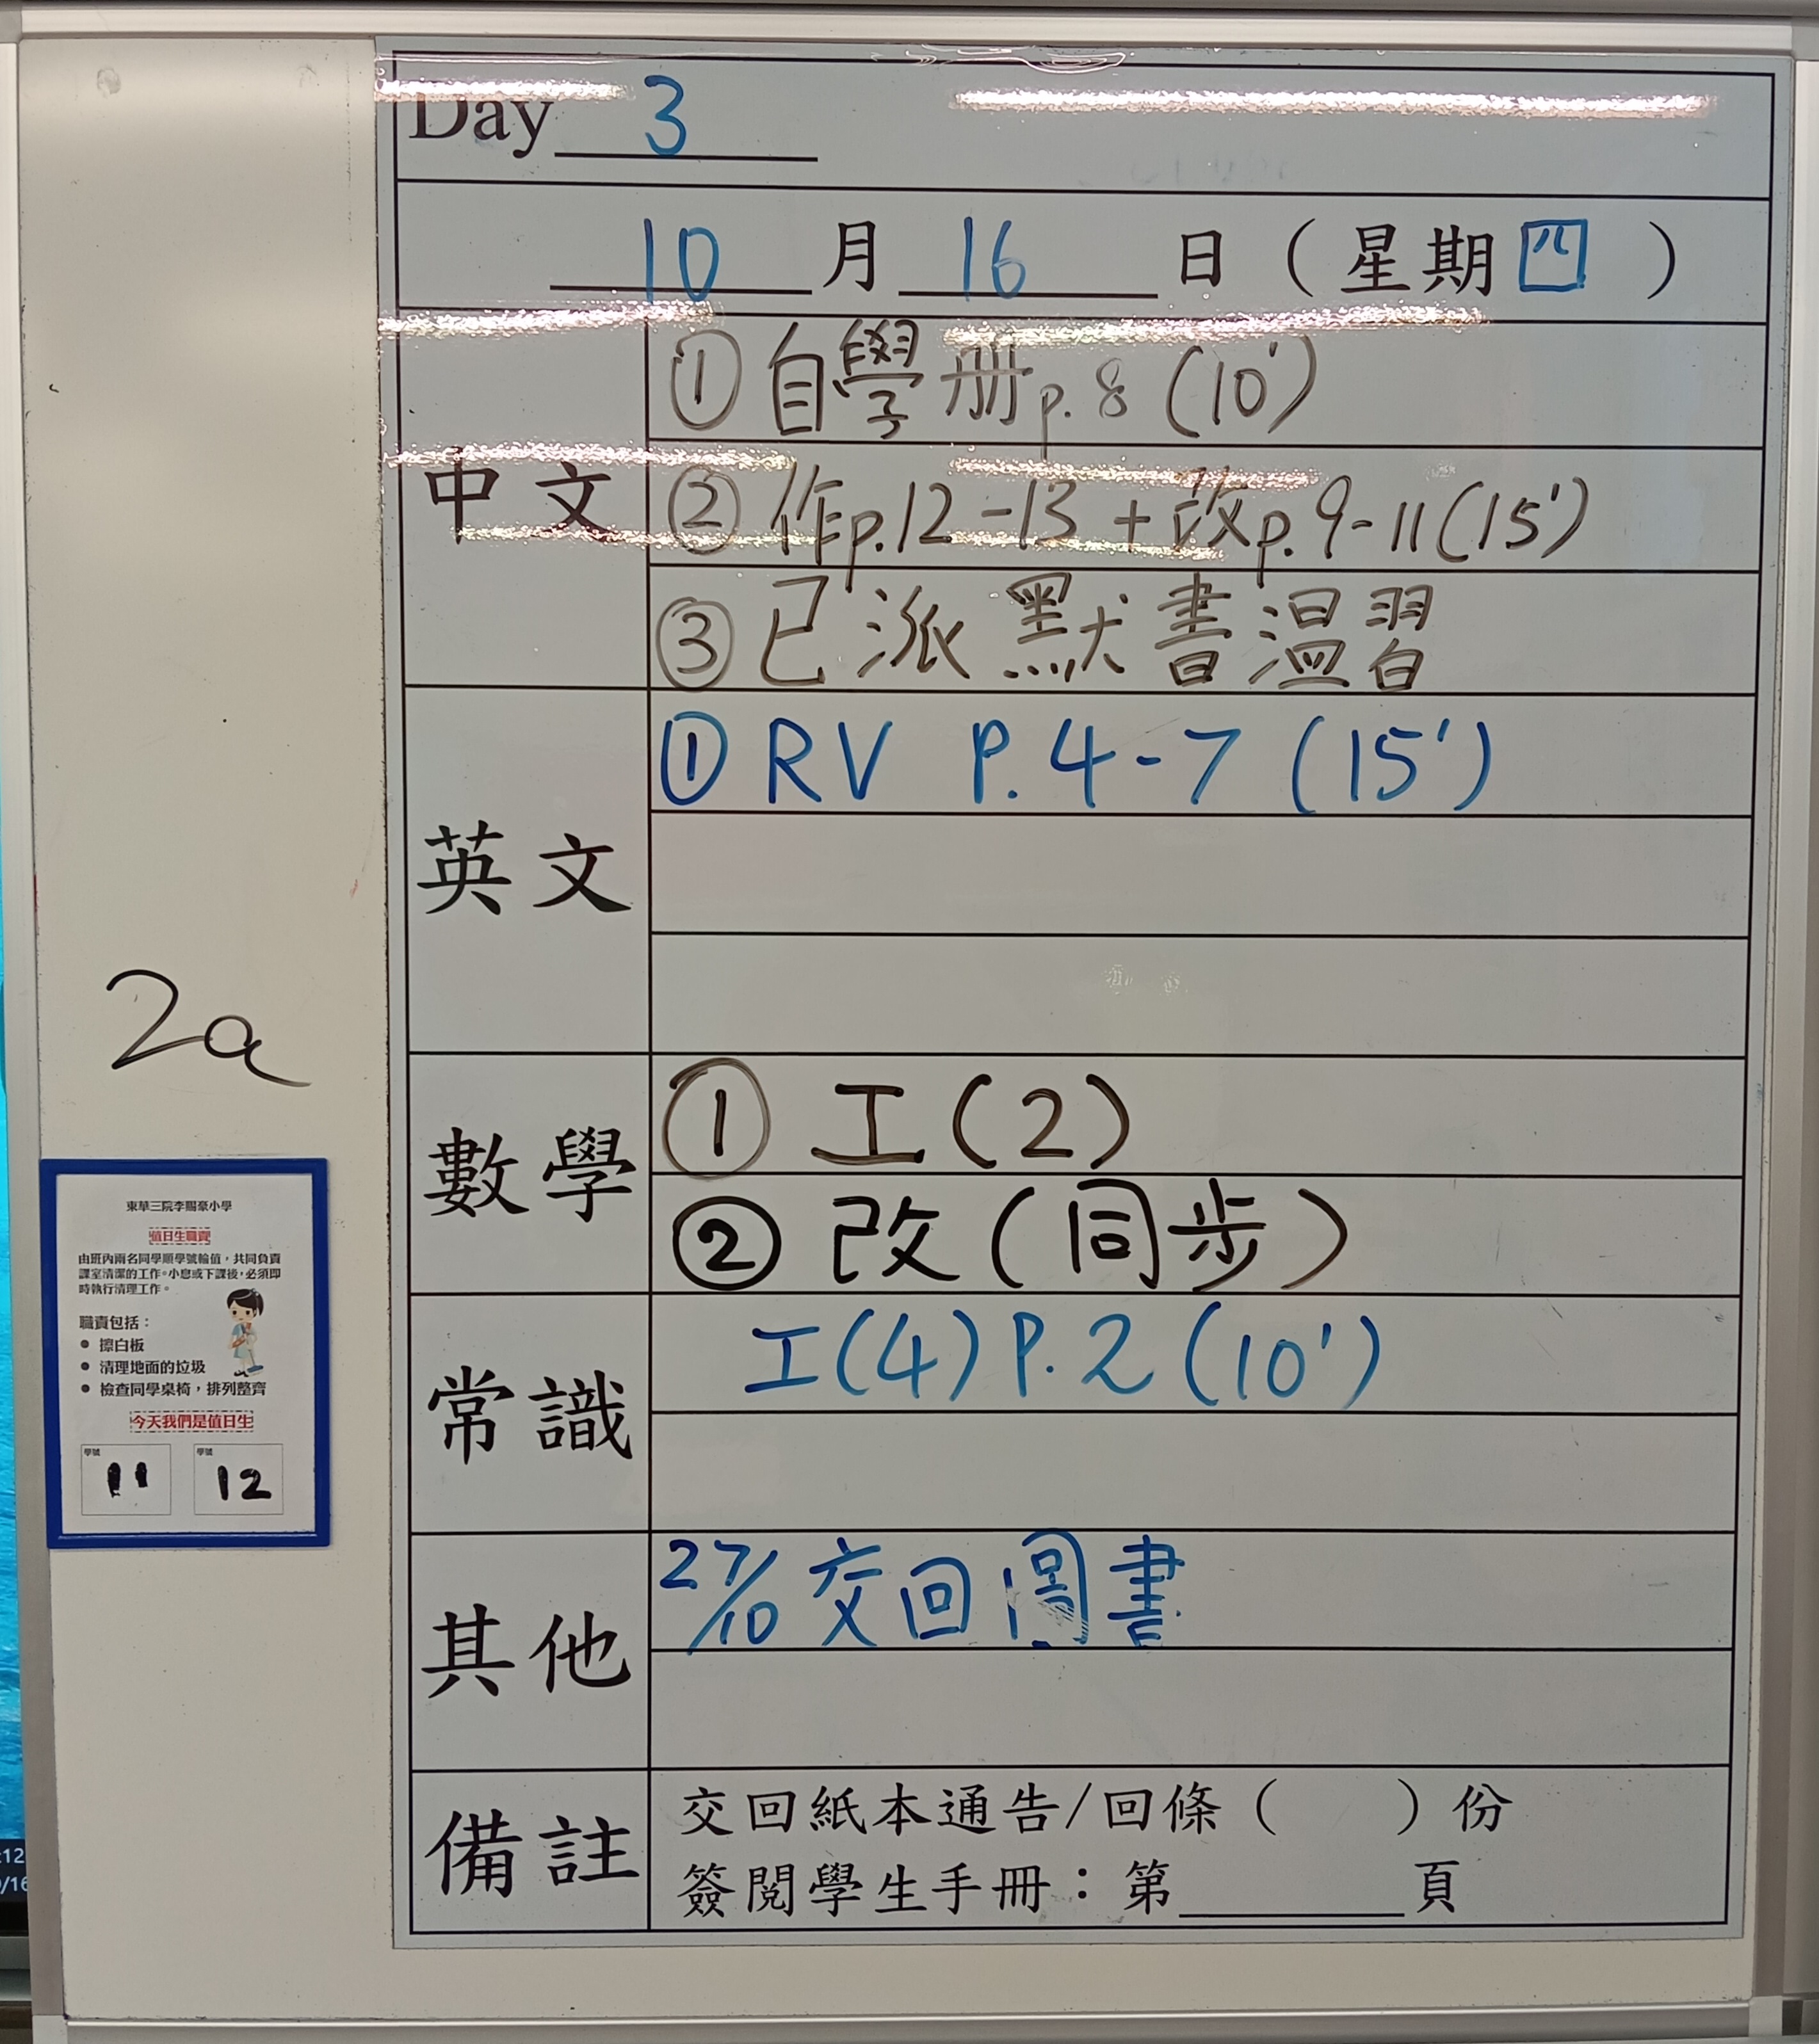 Day 3
10 月 16 日 ( 星期 四 )
中文
① 自學册 p.8 (10')
② 作p.12-13 + 改p.9-11(15')
③ 已派默書溫習
英文
① RV P.4-7 (15')
數學
① 工(2)
② 改(同步)
常識
工(4) P.2 (10')
其他
27/10 交回圖書
備註
交回紙本通告/回條 (  ) 份
簽閱學生手冊：第 頁
2a
東華三院李賜豪小學
值日生職責
由班內兩名同學順學號輪值，共同負責
課室清潔的工作。小息或下課後，必須即
時執行清理工作。
職責包括：
● 擦白板
● 清理地面的垃圾
● 檢查同學桌椅，排列整齊
今天我們是值日生
學號 11
學號 12
:12
/16